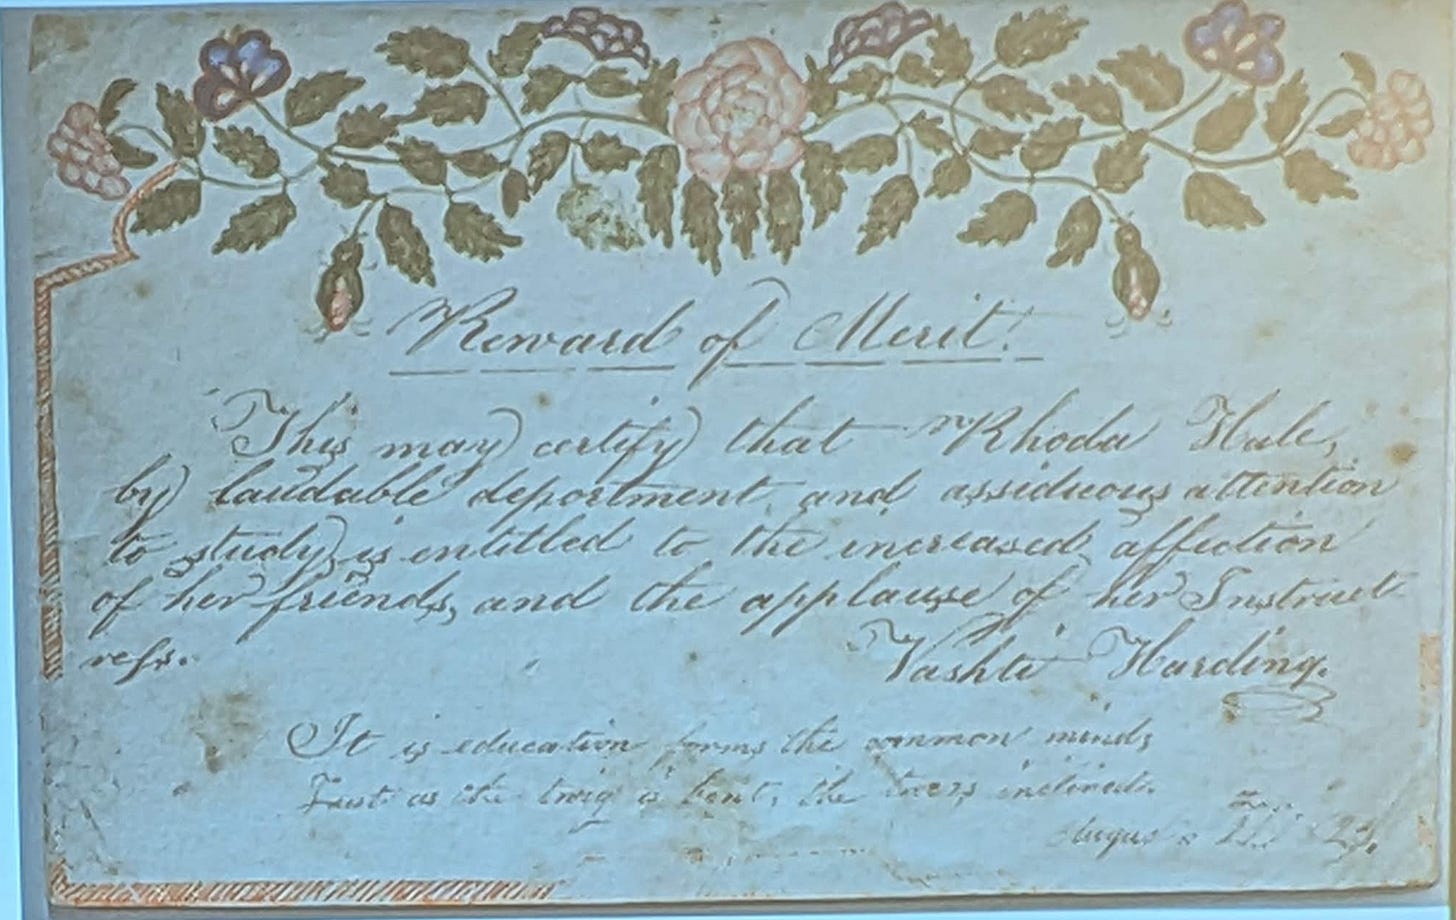 Reward of Merit.
This may certify that Rhoda Hale,
by laudable deportment and assiduous attention
to study, is entitled to the increased affection
of her friends, and the applause of her Instruct
ress.
Vashti Harding.
It is education forms the common mind,
Just as the twig is bent, the trees inclined.
August